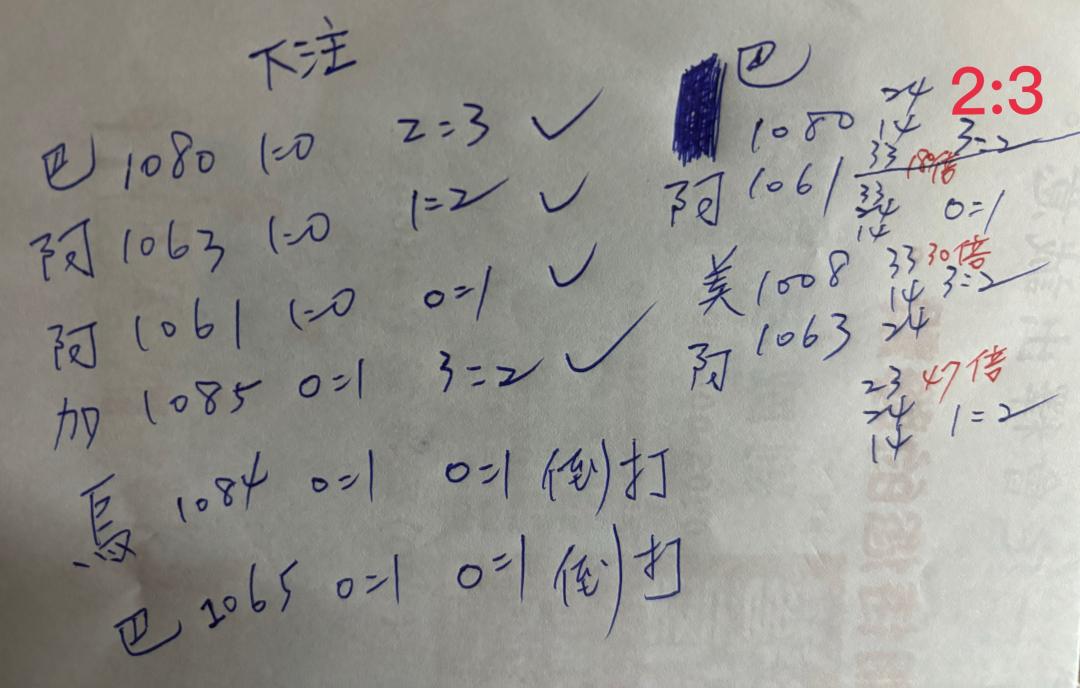 下注
巴 1080 1=0 2=3 ✓
阿 1063 1=0 1=2 ✓
阿 1061 1=0 0=1 ✓
加 1085 0=1 3=2 ✓
烏 1084 0=1 0=1 (倒)打
巴 1065 0=1 0=1 (倒)打
巴
2:3
24
1080 14 3=2
33 18倍
阿 1061 33
24 0=1
14
美 1008 33 30倍
14 3=2
阿 1063 24
23 47倍
24 1=2
14